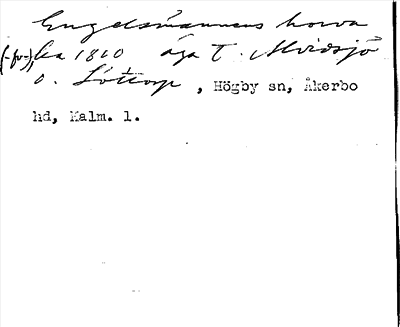 Engelsmannens horva
(-fv-), ka 1860 äga t. Alvidsjö
o. Löttorp, Högby sn, Åkerbo
hd, Kalm. l.